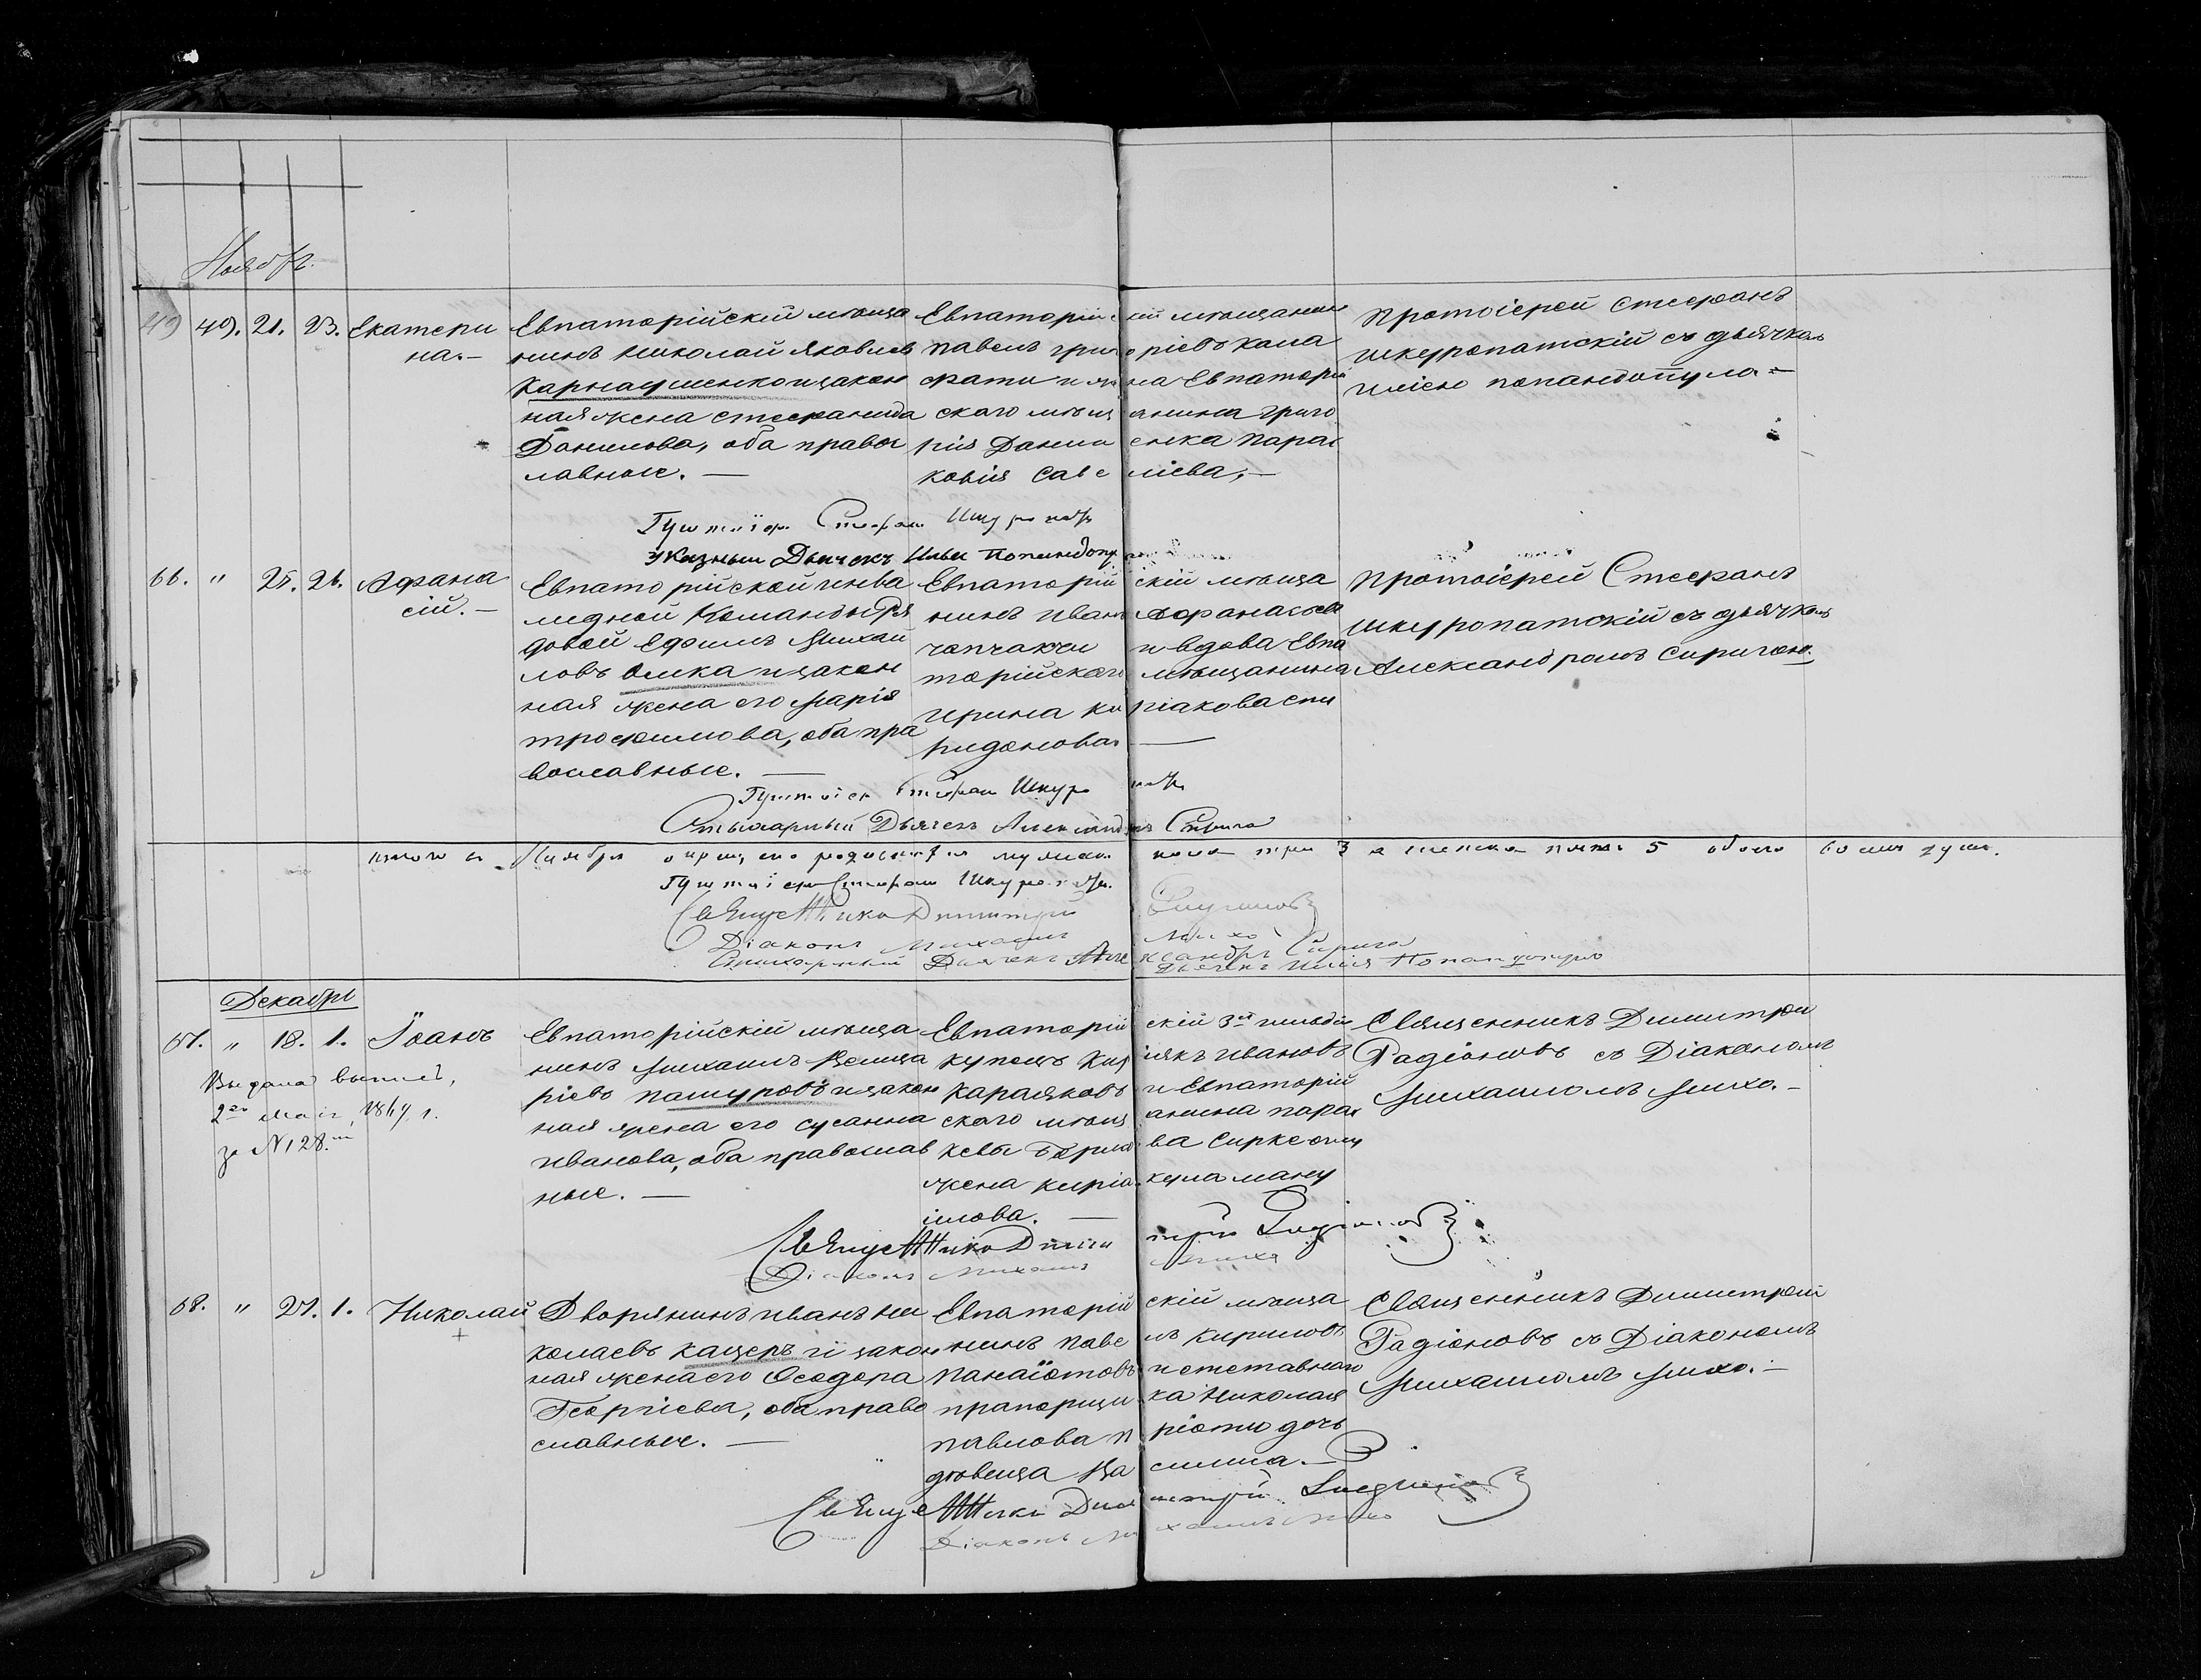 Ноябр.
49 49. 21. 23. Екатери
на.—
Евпаторійскій мѣща
нинъ Николай Яковлев
Карнаушенко и закон
ная жена Стефанида
Данилова, оба правос
лавные. —
Евпаторійскій мѣщанин
Павелъ Григоріевъ Кала
фати и жена Евпаторій
скаго мѣщанина Григо
рія Данил енка Парас
ковія Савеліева, —
Протоіерей Стефанъ
Шкуропатскій съ дьячком
Иліею Попандопуло —
Протоіер. Стефан Шкуропат
Указный Дьячекъ Илья Попандопуло
66. " 25. 26. Афана
сій. —
Евпаторійской инва
лидной команды Ря
довой Ефимъ Михай
ловъ Олика и закон
ная жена его Марія
Трофимова, оба пра
вославные. —
Евпаторійскій мѣща
нинъ Иванъ Афанасьев
Чапчакчи и вдова Евпа
торійскаго мѣщанина
Ирина Киріакова Спи
ридонова —
Протоіерей Стефанъ
Шкуропатскій съ дьячкомъ
Александромъ Сиригою.
Протоіер Стефан Шкуропат
Стихарный Дьячекъ Александръ Сирига
итого въ Ноябрѣ окрещено родившихся мужеска пола три 3 а женска пять 5 обоего восмь душ.
Протоіер Стефан Шкуропат.
Священника Димитрій Родионовъ
Діаконъ Михаилъ Михо
Стихарный Дьячекъ Александръ Сирига
Дьячекъ Илія Попандопуло
Декабрь
67. " 18. 1. Іоанъ
Выдана выпись,
2го мая 1869 г.
за №128.
Евпаторійскій мѣща
нинъ Михаилъ
ріевъ Пашуровъ и закон
ная жена его Сусанна
Иванова, оба православ
ные. —
Евпаторійскій 3й гильдіи
купецъ Киріякъ Ивановъ
Караяковъ и Евпаторій
скаго мѣщанина Парас
кева
жена Киріакула Ману
илова. —
Священникъ Димитрій
Радіоновъ съ Діакономъ
Михаиломъ Михо. —
Священника Димитрій Родионовъ
Діаконъ Михаилъ Михо
68. " 27. 1. Николай
+
Дворянинъ Иванъ Ни
колаевъ Кацеръ и закон
ная жена его Феодора
Георгіева, оба право
славные. —
Евпаторійскій мѣща
нинъ Павелъ Кириловъ
Панаіотовъ и отставнаго
прапорщика Николая
Павлова Піоти дочь
дѣвица Васились. —
Священникъ Димитрій
Радіоновъ съ Діакономъ
Михаиломъ Михо. —
Священника Димитрій Родионовъ
Діаконъ Михаилъ Михо